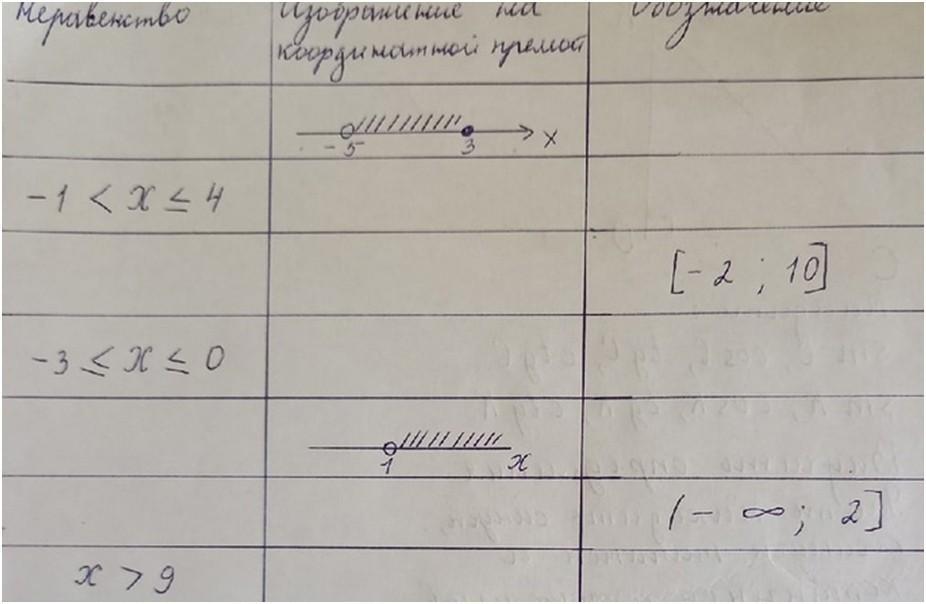 Неравенство
Изображение на
координатной прямой
Обозначение
-5 3 x
-1 < x ≤ 4
[-2 ; 10]
-3 ≤ x ≤ 0
1 x
(- ∞; 2]
x > 9